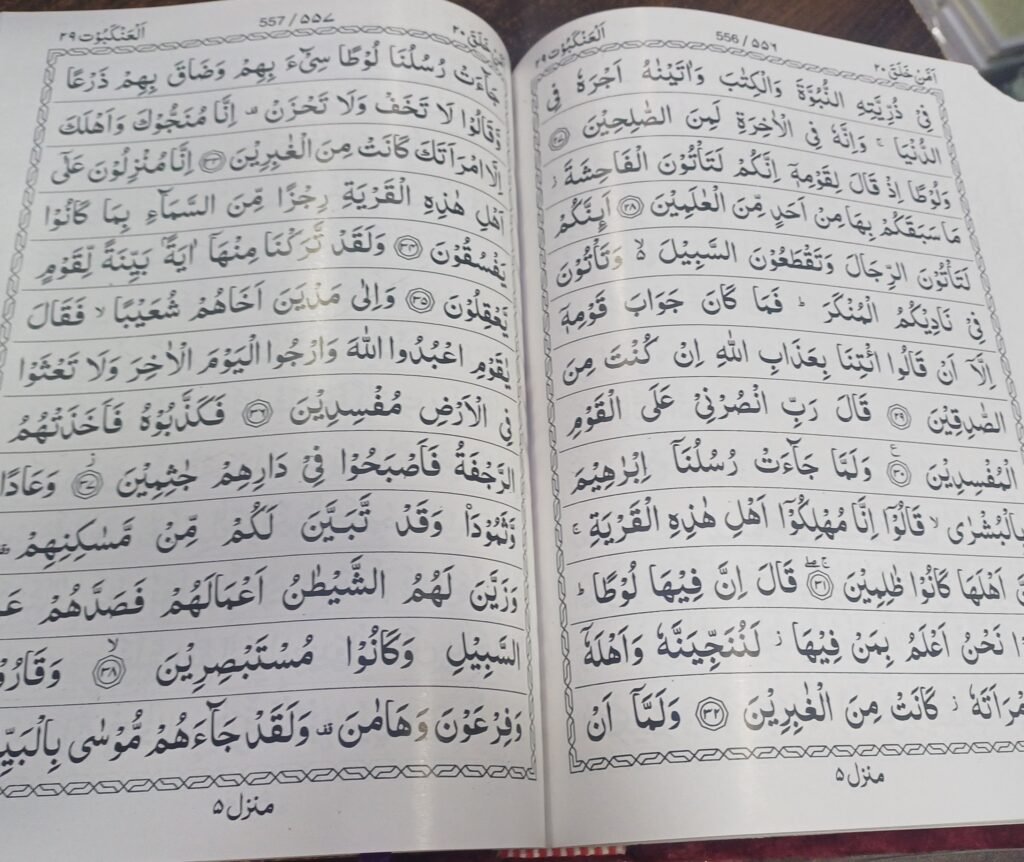 اَمَّنْ خَلَقَ ٢٠
556 / ۵۵۶
اَلْعَنْكَبُوْت ٢٩
فِيْ ذُرِّيَّتِهِ النُّبُوَّةَ وَالْكِتٰبَ وَاٰتَيْنٰهُ اَجْرَهٗ فِي
الدُّنْيَا ۚ وَاِنَّهٗ فِي الْاٰخِرَةِ لَمِنَ الصّٰلِحِيْنَ ۝٢٧
وَلُوْطًا اِذْ قَالَ لِقَوْمِهٖٓ اِنَّكُمْ لَتَاْتُوْنَ الْفَاحِشَةَ ز
مَا سَبَقَكُمْ بِهَا مِنْ اَحَدٍ مِّنَ الْعٰلَمِيْنَ ۝٢٨ اَئِنَّكُمْ
لَتَاْتُوْنَ الرِّجَالَ وَتَقْطَعُوْنَ السَّبِيْلَ ۙ۬ وَتَاْتُوْنَ
فِيْ نَادِيْكُمُ الْمُنْكَرَ ؕ فَمَا كَانَ جَوَابَ قَوْمِهٖٓ
اِلَّاۤ اَنْ قَالُوا ائْتِنَا بِعَذَابِ اللّٰهِ اِنْ كُنْتَ مِنَ
الصّٰدِقِيْنَ ۝٢٩ قَالَ رَبِّ انْصُرْنِيْ عَلَى الْقَوْمِ
الْمُفْسِدِيْنَ ۝٣٠ ع وَلَمَّا جَآءَتْ رُسُلُنَاۤ اِبْرٰهِيْمَ
بِالْبُشْرٰى ۙ قَالُوْۤا اِنَّا مُهْلِكُوْۤا اَهْلِ هٰذِهِ الْقَرْيَةِ ۚ
اَهْلَهَا كَانُوْا ظٰلِمِيْنَ ۝٣١ قَالَ اِنَّ فِيْهَا لُوْطًا ؕ
نَحْنُ اَعْلَمُ بِمَنْ فِيْهَا ز لَنُنَجِّيَنَّهٗ وَاَهْلَهٗۤ
مْرَاَتَهٗ ز كَانَتْ مِنَ الْغٰبِرِيْنَ ۝٣٢ وَلَمَّاۤ اَنْ
منزل ۵
اَمَّنْ خَلَقَ ٢٠
557 / ۵۵۷
اَلْعَنْكَبُوْت ٢٩
جَآءَتْ رُسُلُنَا لُوْطًا سِيْٓءَ بِهِمْ وَضَاقَ بِهِمْ ذَرْعًا
وَّقَالُوْا لَا تَخَفْ وَلَا تَحْزَنْ ۫ اِنَّا مُنَجُّوْكَ وَاَهْلَكَ
اِلَّا امْرَاَتَكَ كَانَتْ مِنَ الْغٰبِرِيْنَ ۝٣٣ اِنَّا مُنْزِلُوْنَ عَلٰۤى
اَهْلِ هٰذِهِ الْقَرْيَةِ رِجْزًا مِّنَ السَّمَآءِ بِمَا كَانُوْا
يَفْسُقُوْنَ ۝٣٤ وَلَقَدْ تَّرَكْنَا مِنْهَاۤ اٰيَةًۢ بَيِّنَةً لِّقَوْمٍ
يَّعْقِلُوْنَ ۝٣٥ وَاِلٰى مَدْيَنَ اَخَاهُمْ شُعَيْبًا ۙ فَقَالَ
يٰقَوْمِ اعْبُدُوا اللّٰهَ وَارْجُوا الْيَوْمَ الْاٰخِرَ وَلَا تَعْثَوْا
فِي الْاَرْضِ مُفْسِدِيْنَ ۝٣٦ فَكَذَّبُوْهُ فَاَخَذَتْهُمُ
الرَّجْفَةُ فَاَصْبَحُوْا فِيْ دَارِهِمْ جٰثِمِيْنَ ۝٣٧ ز وَعَادًا
وَّثَمُوْدَا۠ وَقَدْ تَّبَيَّنَ لَكُمْ مِّنْ مَّسٰكِنِهِمْ ۫
وَزَيَّنَ لَهُمُ الشَّيْطٰنُ اَعْمَالَهُمْ فَصَدَّهُمْ عَـ
السَّبِيْلِ وَكَانُوْا مُسْتَبْصِرِيْنَ ۝٣٨ ۙ وَقَارُوْ
وَفِرْعَوْنَ وَهَامٰنَ ۫ وَلَقَدْ جَآءَهُمْ مُّوْسٰى بِالْبَيِّـ
منزل ۵